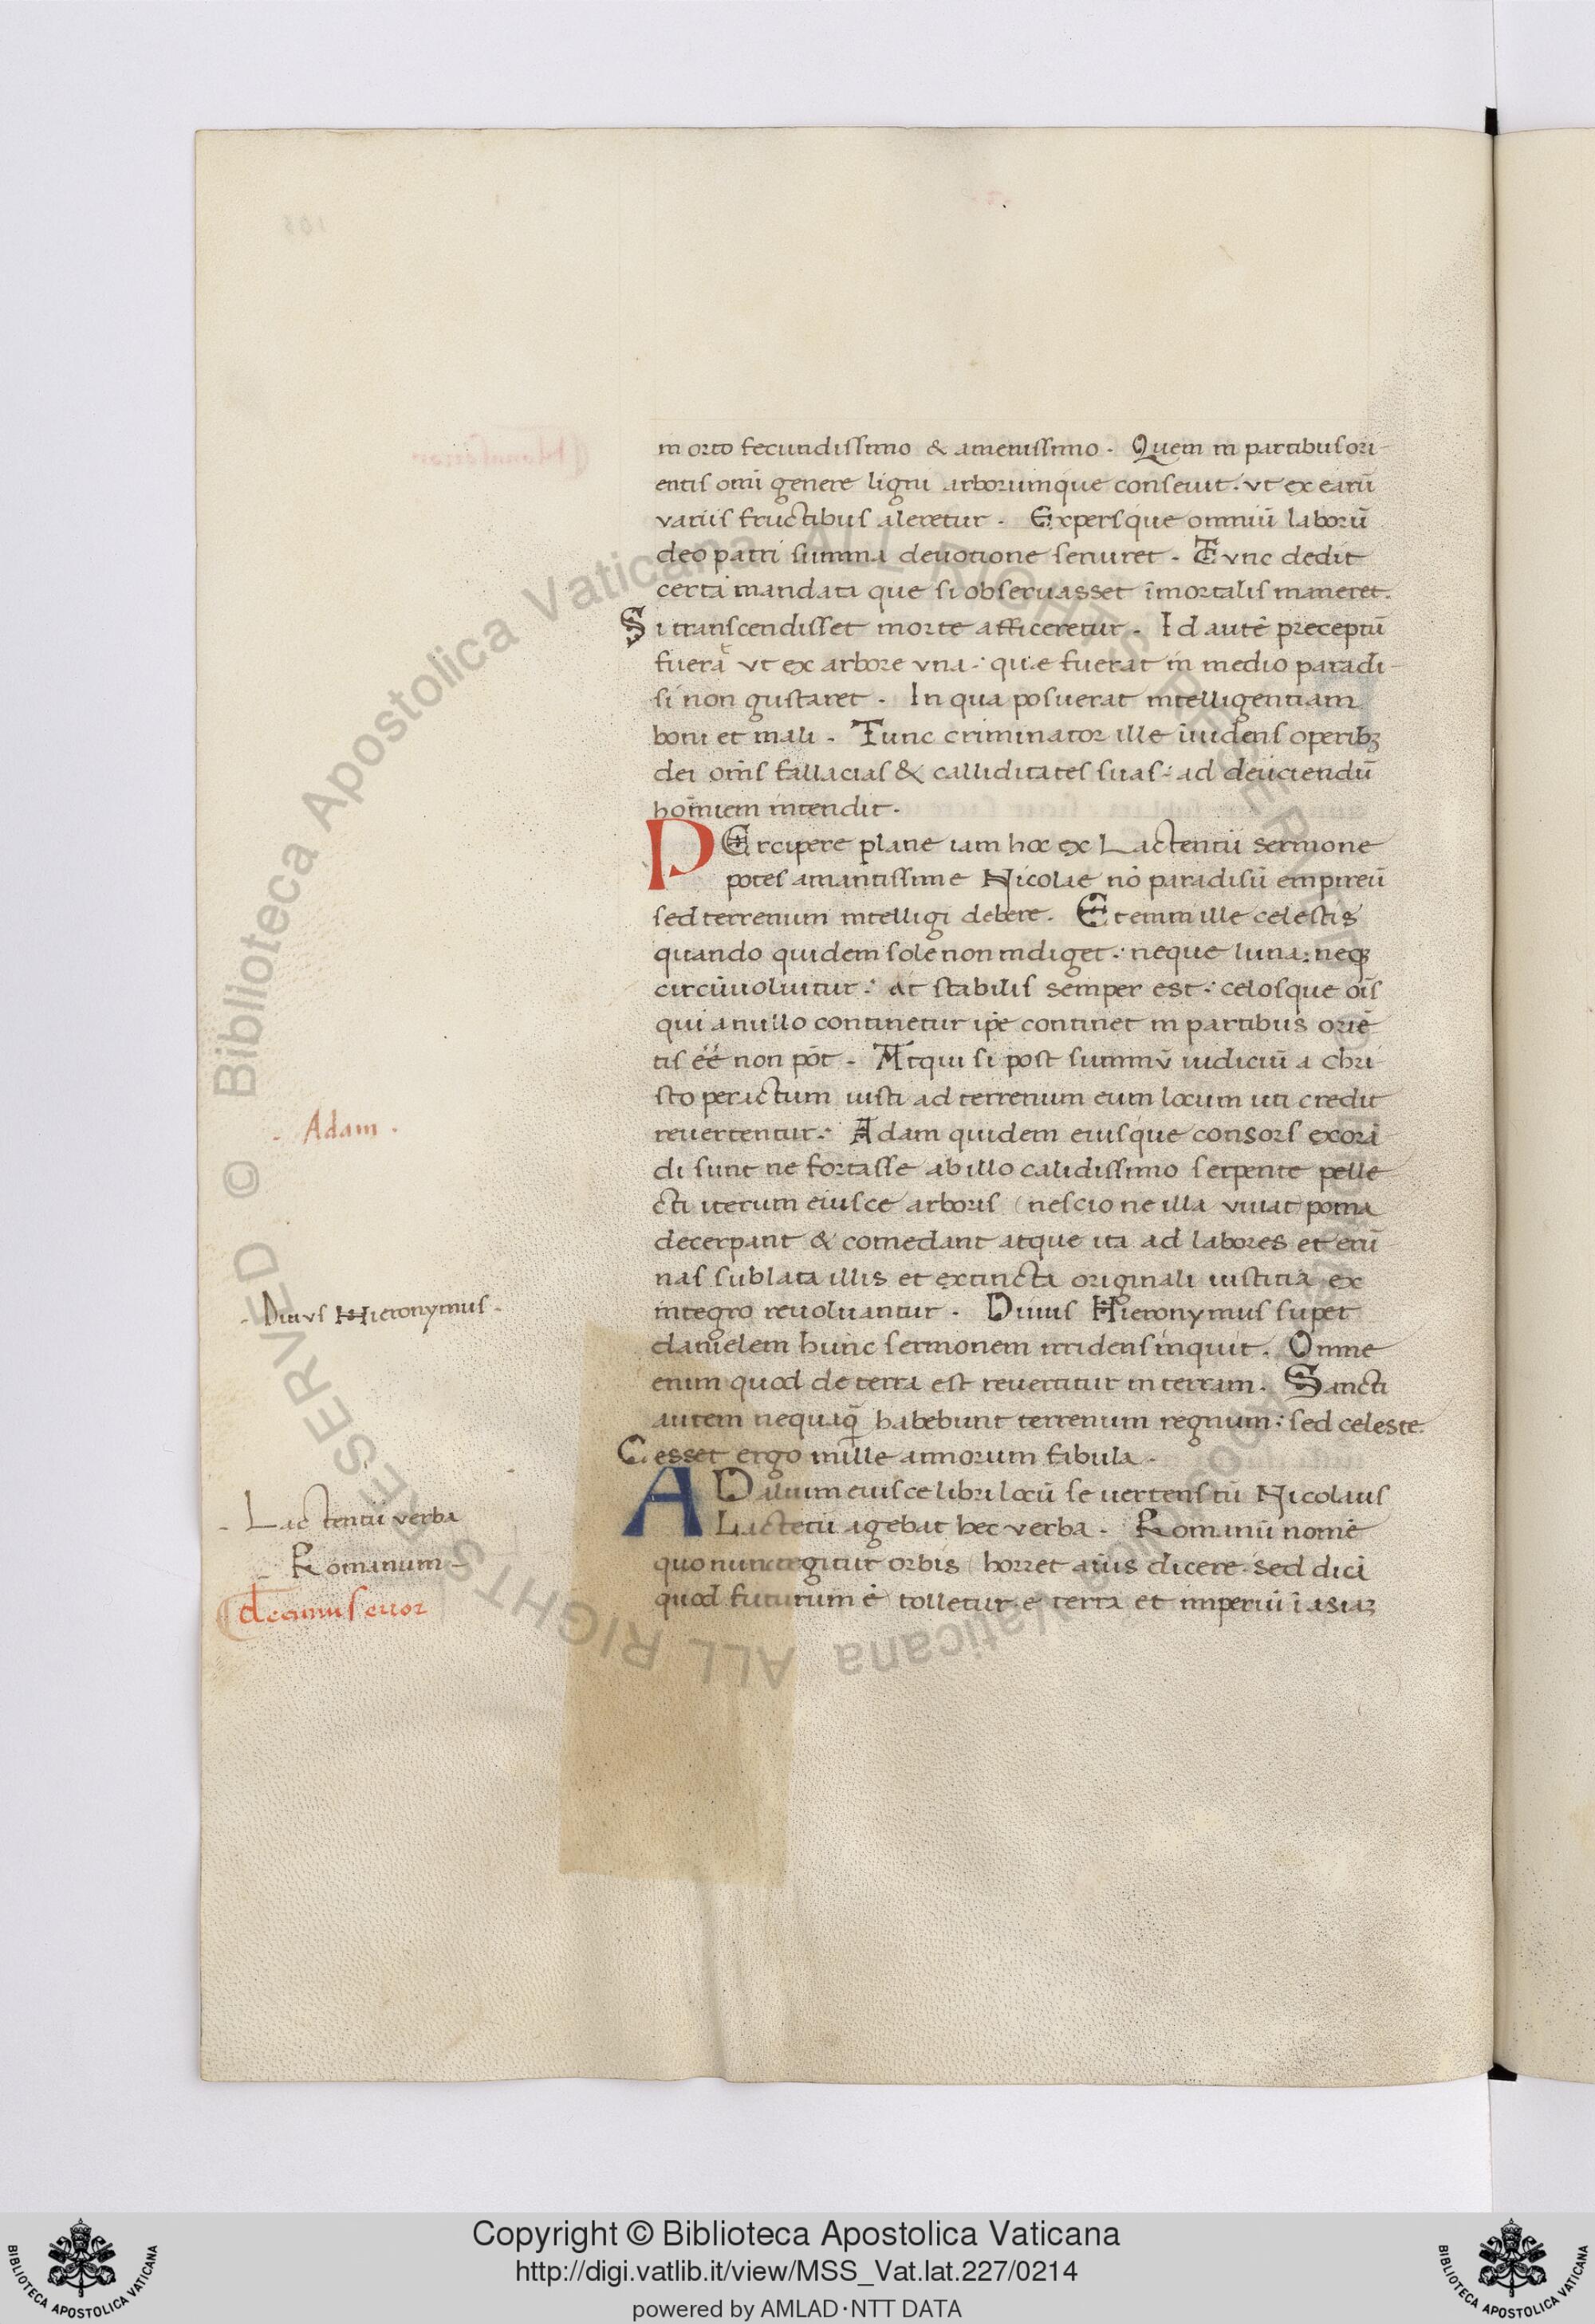 in orto fecundissimo & amenissimo. Quem in partibus ori-
entis omī genere ligni arborumque conseuit. vt ex earū
variis fructibus aleretur. Expersque omniū laborū
deo patri summa deuotione seruiret. Tvnc dedit
certa mandata que si obseruasset īmortalis maneret.
Si transcendisset morte afficeretur. Id autē preceptū
fuerat vt ex arbore vna: que fuerat in medio paradi-
si non gustaret. In qua posuerat intelligentiam
boni et mali. Tunc criminator ille inuidens operibꝫ
dei om̄s fallacias & calliditates suas: ad deiiciendū
hoīniem intendit.
PErcipere plane iam hoc ex Lactentii sermone
potes amantissime Nicolae nō paradisū empireū
sed terrenum intelligi debere. Etenim ille celestis
quando quidem sole non indiget: neque luna: neqꝫ
circūuoluitur: At stabilis semper est: celosque oīs
qui a nullo continetur ip̄e continet in partibus oriē
tis ēē non pōt. Atqui si post summū iudiciū a Chri
sto peractum iusti ad terrenum eum locum uti credit
reuertentur: Adam quidem eiusque consors exorā
di sunt ne fortasse ab illo calidissimo serpente pelle
cti iterum eiusce arboris (nescio ne illa viuat) poma
decerpant & comedant atque ita ad labores et erū
nas sublata illis et extincta originali iustitia ex
integro reuoluantur. Diuus Hieronymus super
danielem hunc sermonem irridens inquit. Omne
enim quod de terra est reuertitur in terram. Sancti
autem nequaq̄ habebunt terrenum regnum: sed celeste.
Cesset ergo mille annorum fabula.
- Adam.
- Diuvs Hieronymus.
AD alium eiusce libri locū se uertens tū Nicolaus
Lactētii agebat hec verba. Romanū nomē
quo nunc regitur orbis (horret aīus dicere. sed dicā
quod futurum ē) tolletur e terra et imperiū ī asiaꝫ
- Lactentii verba
- Romanum -
decimus error
Copyright © Biblioteca Apostolica Vaticana
http://digi.vatlib.it/view/MSS_Vat.lat.227/0214
powered by AMLAD·NTT DATA